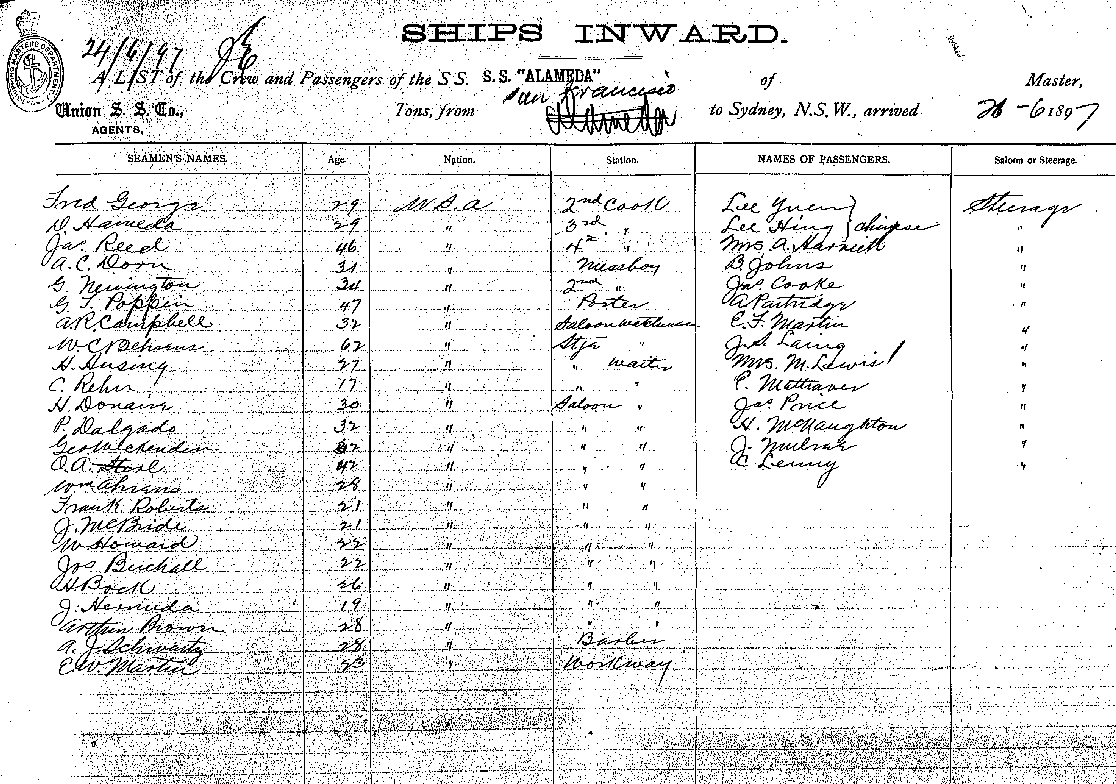 SHIPS INWARD.
24/6/97
A LIST of the Crew and Passengers of the S.S. S.S. "ALAMEDA" of Master,
Union S. S. Co., Tons, from San Francisco to Sydney, N.S.W., arrived -6 1897
AGENTS,
SEAMEN'S NAMES. Age. Nation. Station. NAMES OF PASSENGERS. Saloon or Steerage.
Fred George 29 U.S.A 2nd Cook Lee Yuen Steerage
29 " 3rd " Lee Hing } chinese "
Jas. Reed 46 " 4th " Mrs A. "
A. C. Dorn 31 " Messboy B. Johns "
G. Newington 34 " 2nd " Jas. Cooke "
G. T. Poppin 47 " Porter A Partridge "
A R Campbell 32 " Saloon Watchman C. F. Martin "
W. C. 62 " J. S. Laing "
H. Husing 27 " " waiter Mrs. M. Lewis "
C. Rehn 17 " " " E. "
H. 30 " Saloon " Jas Price "
P. Dalgado 32 " " " H. McNaughton "
Geo 42 " " " J. "
O. A. 42 " " " C Lenny "
Wm Ahrens 28 " " "
Frank Roberts 21 " " "
J. McBride 21 " " "
W Howard 22 " " "
Jos Birchall 22 " " "
H Bock 26 " " "
J. Hermida 19 " " "
Arthur Brown 28 " " "
A. J. Schwartz 28 " Barber
E. W. Martin 23 " Workway